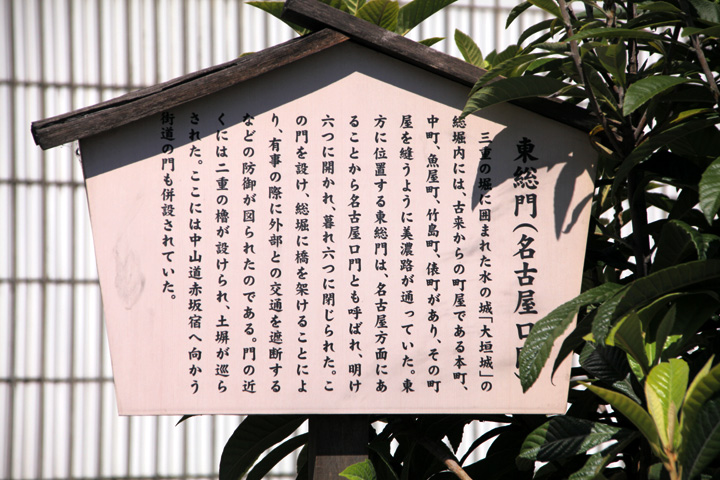 東総門（名古屋口
三重の堀に囲まれた水の城「大垣城」の
総堀内には、古来からの町屋である本町、
中町、魚屋町、竹島町、俵町があり、その町
屋を縫うように美濃路が通っていた。東
方に位置する東総門は、名古屋方面にあ
ることから名古屋口門とも呼ばれ、明け
六つに開かれ、暮れ六つに閉じられた。こ
の門を設け、総堀に橋を架けることによ
り、有事の際に外部との交通を遮断する
などの防御が図られたのである。門の近
くには二重の櫓が設けられ、土塀が巡ら
された。ここには中山道赤坂宿へ向かう
街道の門も併設されていた。